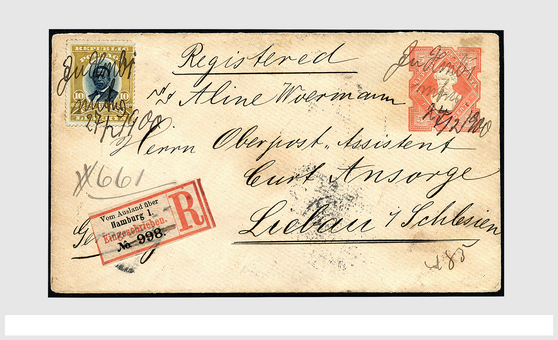 REPUBLIC
10 10
27/12/1900
Registered
27/12/1900
Aline Woermann
Herrn Oberpost-Assistent
Curt Ansorge
Liebau / Schlesien
#661
Vom Ausland über
Hamburg 1.
Eingeschrieben.
№ 998.
R
85